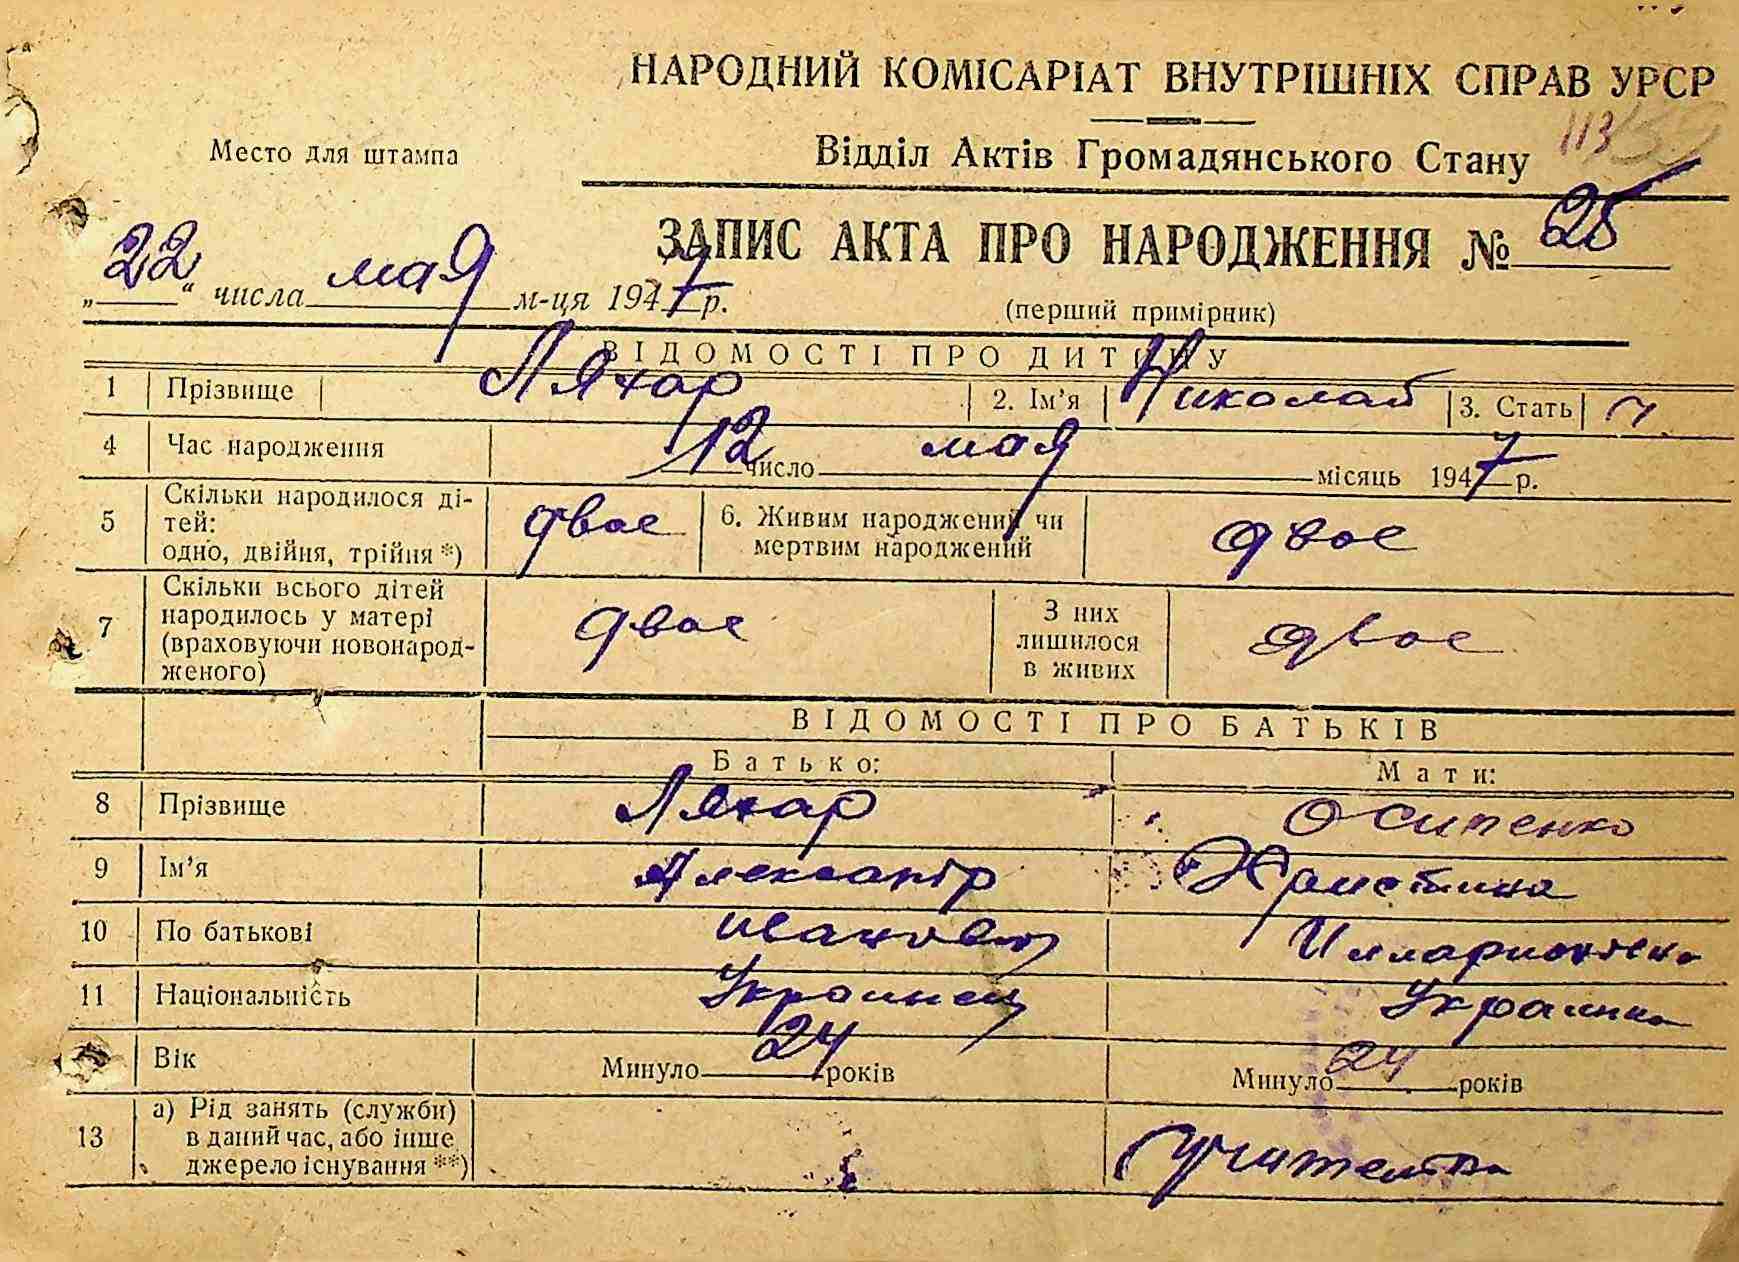 НАРОДНИЙ КОМІСАРІАТ ВНУТРІШНІХ СПРАВ УРСР
Место для штампа
Відділ Актів Громадянського Стану
113
ЗАПИС АКТА ПРО НАРОДЖЕННЯ № 25
„22“ числа мая м-ця 1947 р.
(перший примірник)
ВІДОМОСТІ ПРО ДИТИНУ
1 Прізвище Ляхар 2. Ім'я Николай 3. Стать
4 Час народження 12 число мая місяць 1947 р.
5 Скільки народилося ді-
тей:
одно, двійня, трійня *) двое 6. Живим народжений чи
мертвим народжений двое
7 Скільки всього дітей
народилось у матері
(враховуючи новонарод-
женого) двое З них
лишилося
в живих двое
ВІДОМОСТІ ПРО БАТЬКІВ
Батько: Мати:
8 Прізвище Ляхар Осипенко
9 Ім'я Александр Христина
10 По батькові Иванович Илларионовна
11 Національність Украинец Украинка
Вік Минуло 24 років Минуло 24 років
13 а) Рід занять (служби)
в даний час, або інше
джерело існування **) учителька